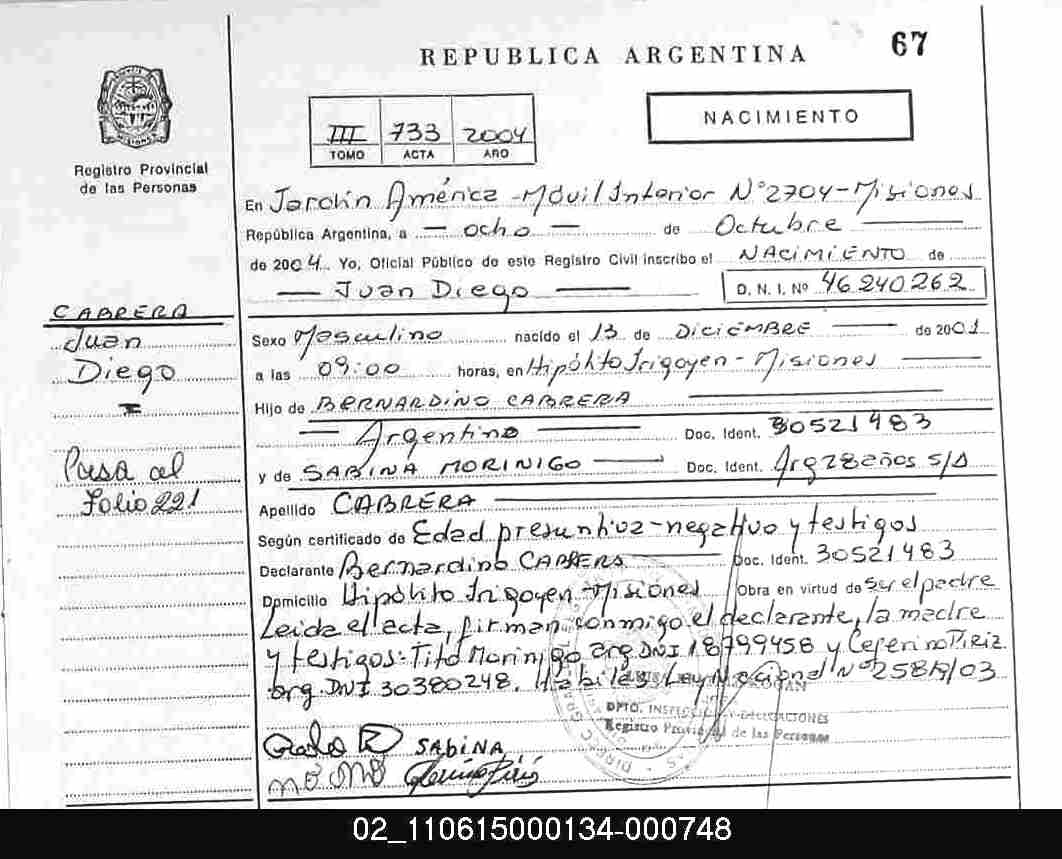 REPUBLICA ARGENTINA
67
Registro Provincial
de las Personas
III 733 2004
TOMO ACTA AÑO
NACIMIENTO
En Jardín América - Móvil Interior N° 2704 - Misiones
República Argentina, a — ocho — de Octubre
de 2004. Yo, Oficial Público de este Registro Civil inscribo el NACIMIENTO de
Juan Diego D. N. I. Nº 46240262
CABRERA
Juan
Diego
Pasa al
Folio 221
Sexo Masculino nacido el 13 de DICIEMBRE de 2001
a las 09:00 horas, en Hipólito Irigoyen - Misiones
Hijo de BERNARDINO CABRERA
Argentino Doc. Ident. 30521483
y de SABINA MORINIGO Doc. Ident. Arg 28 años S/D
Apellido CABRERA
Según certificado de Edad presuntiva - negativo y testigos
Declarante Bernardino CABRERA Doc. Ident. 30521483
Domicilio Hipólito Irigoyen - Misiones Obra en virtud de ser el padre
Leída el acta, firman conmigo el declarante, la madre
y testigos: Tito Morinigo arg. DNI 18799458 y Ceferino Piriz
arg. DNI 30380248. Hábiles Ley Nacional N° 25819/03
DPTO. INSPECCION Y DELEGACIONES
Registro Provincial de las Personas
SABINA
02_110615000134-000748